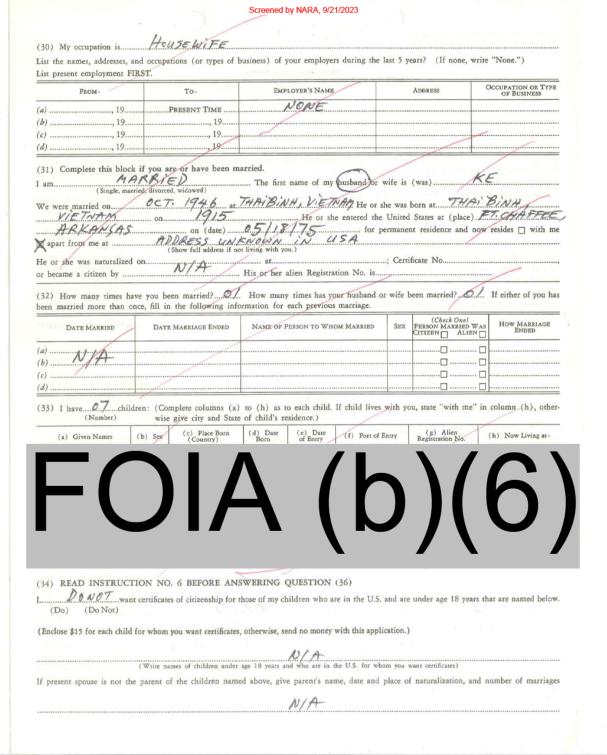 Screened by NARA, 9/21/2023
(30) My occupation is HOUSEWIFE
List the names, addresses, and occupations (or types of business) of your employers during the last 5 years? (If none, write "None.")
List present employment FIRST.
FROM- TO- EMPLOYER'S NAME ADDRESS OCCUPATION OR TYPE OF BUSINESS
(a) , 19 PRESENT TIME NONE
(b) , 19 , 19
(c) , 19 , 19
(d) , 19 , 19
(31) Complete this block if you are or have been married.
I am MARRIED The first name of my husband or wife is (was) KE
(Single, married, divorced, widowed)
We were married on OCT. 1946 at THAI BINH, VIETNAM He or she was born at THAI BINH,
VIETNAM on 1915 He or she entered the United States at (place) FT. CHAFFEE,
ARKANSAS on (date) 05/18/75 for permanent residence and now resides ☐ with me
X apart from me at ADDRESS UNKNOWN IN USA
(Show full address if not living with you.)
He or she was naturalized on at ; Certificate No.
or became a citizen by N/A His or her alien Registration No. is
(32) How many times have you been married? 01 How many times has your husband or wife been married? 01 If either of you has
been married more than once, fill in the following information for each previous marriage.
DATE MARRIED DATE MARRIAGE ENDED NAME OF PERSON TO WHOM MARRIED SEX (Check One) PERSON MARRIED WAS CITIZEN ☐ ALIEN ☐ HOW MARRIAGE ENDED
(a) ☐ ☐
(b) N/A ☐ ☐
(c) ☐ ☐
(d) ☐ ☐
(33) I have 07 children: (Complete columns (a) to (h) as to each child. If child lives with you, state "with me" in column (h), other-
(Number) wise give city and State of child's residence.)
(a) Given Names (b) Sex (c) Place Born (Country) (d) Date Born (e) Date of Entry (f) Port of Entry (g) Alien Registration No. (h) Now Living at-
FOIA (b)(6)
(34) READ INSTRUCTION NO. 6 BEFORE ANSWERING QUESTION (36)
I DO NOT want certificates of citizenship for those of my children who are in the U.S. and are under age 18 years that are named below.
(Do) (Do Not)
(Enclose $15 for each child for whom you want certificates, otherwise, send no money with this application.)
N/A
(Write names of children under age 18 years and who are in the U.S. for whom you want certificates)
If present spouse is not the parent of the children named above, give parent's name, date and place of naturalization, and number of marriages
N/A